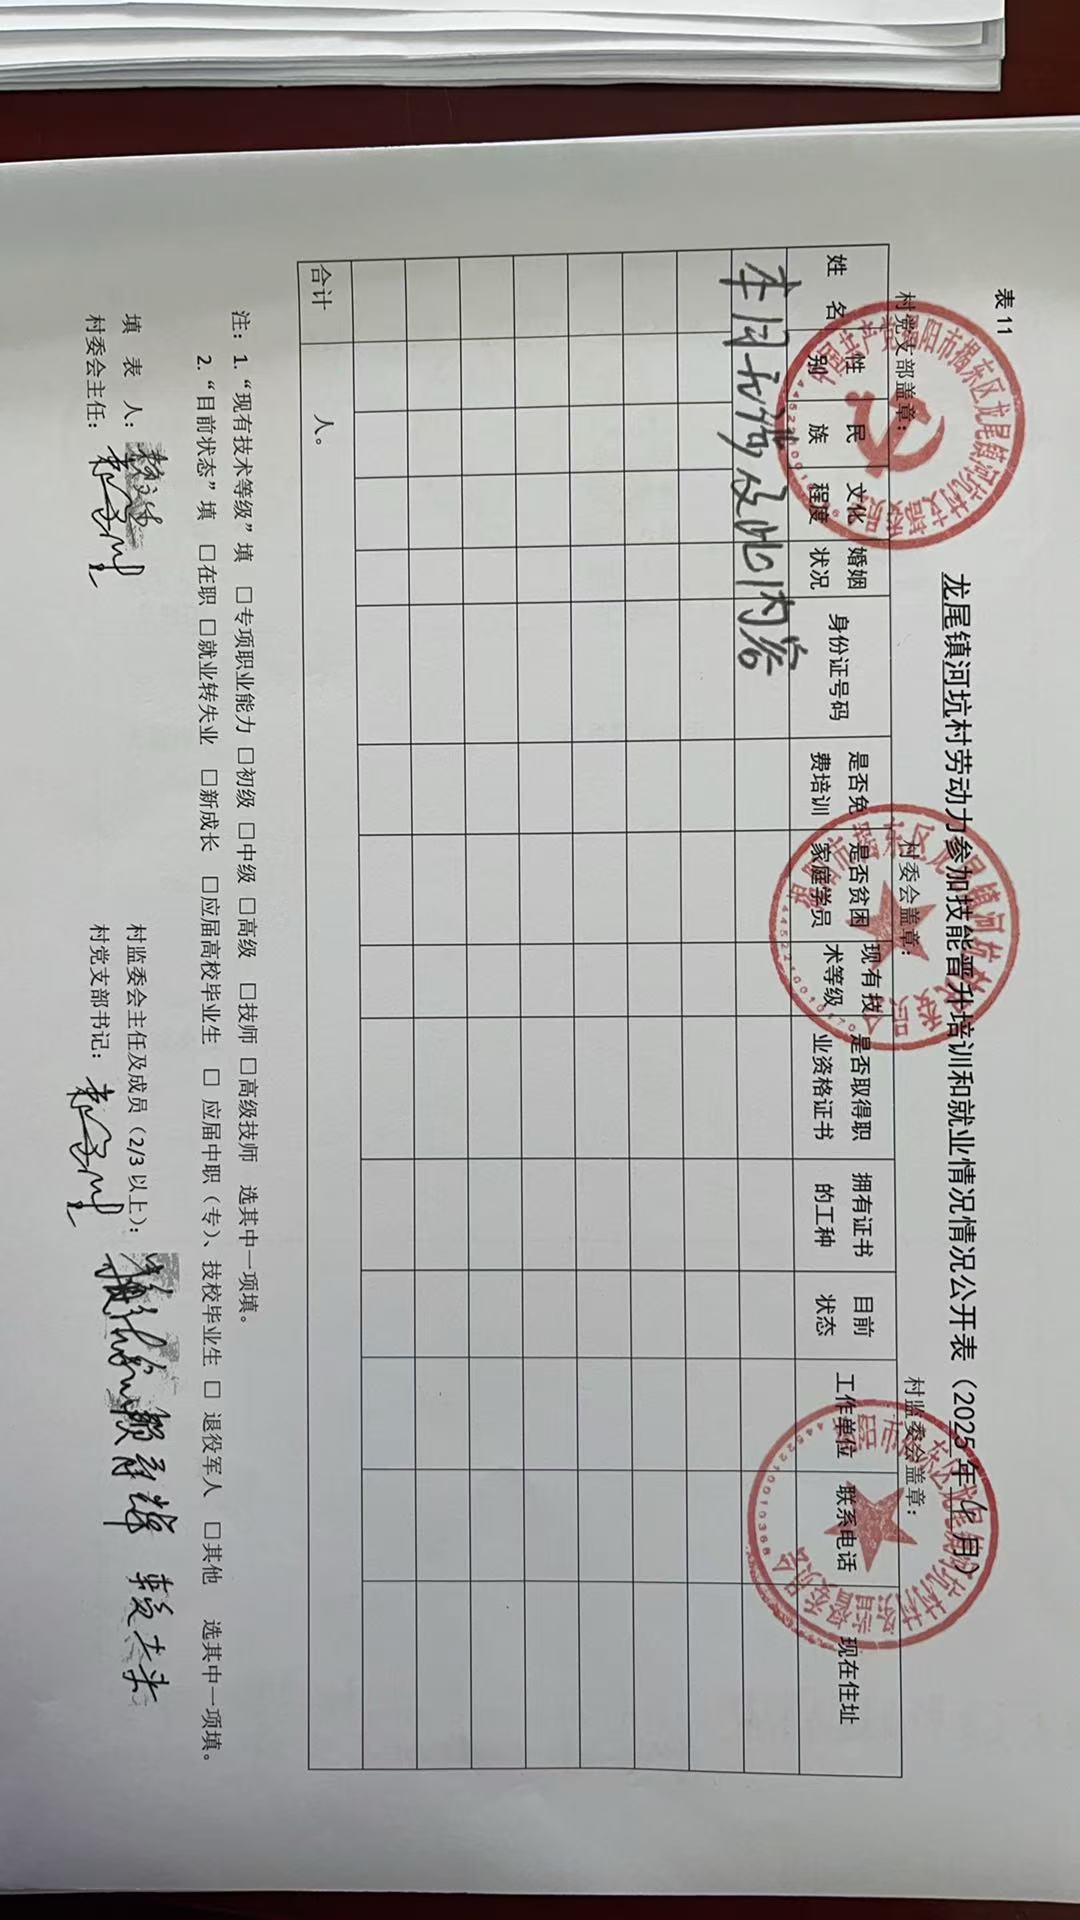 表 11
龙尾镇河坑村劳动力参加技能晋升培训和就业情况情况公开表（2025年 月）
村党支部盖章： 村委会盖章： 村监委会盖章：
姓名 性别 民族 文化程度 婚姻状况 身份证号码 是否免费培训 是否贫困家庭学员 现有技术等级 是否取得职业资格证书 拥有证书的工种 目前状态 工作单位 联系电话 现在住址
本月无涉及此内容
合计 人。
注：1.“现有技术等级”填 □专项职业能力 □初级 □中级 □高级 □技师 □高级技师 选其中一项填。
2.“目前状态”填 □在职 □就业转失业 □新成长 □应届高校毕业生 □ 应届中职（专）、技校毕业生 □ 退役军人 □其他 选其中一项填。
填 表 人： 村监委会主任及成员（2/3 以上）：
村委会主任： 村党支部书记：